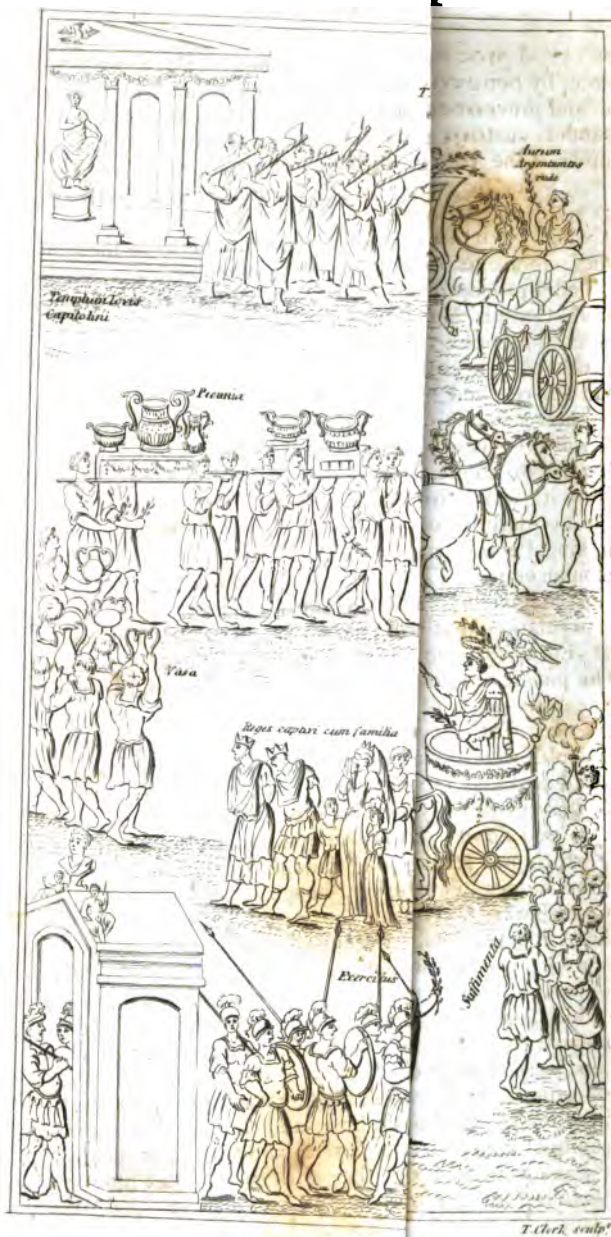 T
Aurum
Argentumve
rude
Templum Iovis
Capitolini
Pecunia
Vasa
Reges captivi cum familia
Exercitus
Suffimenta
T. Clerk sculp.t